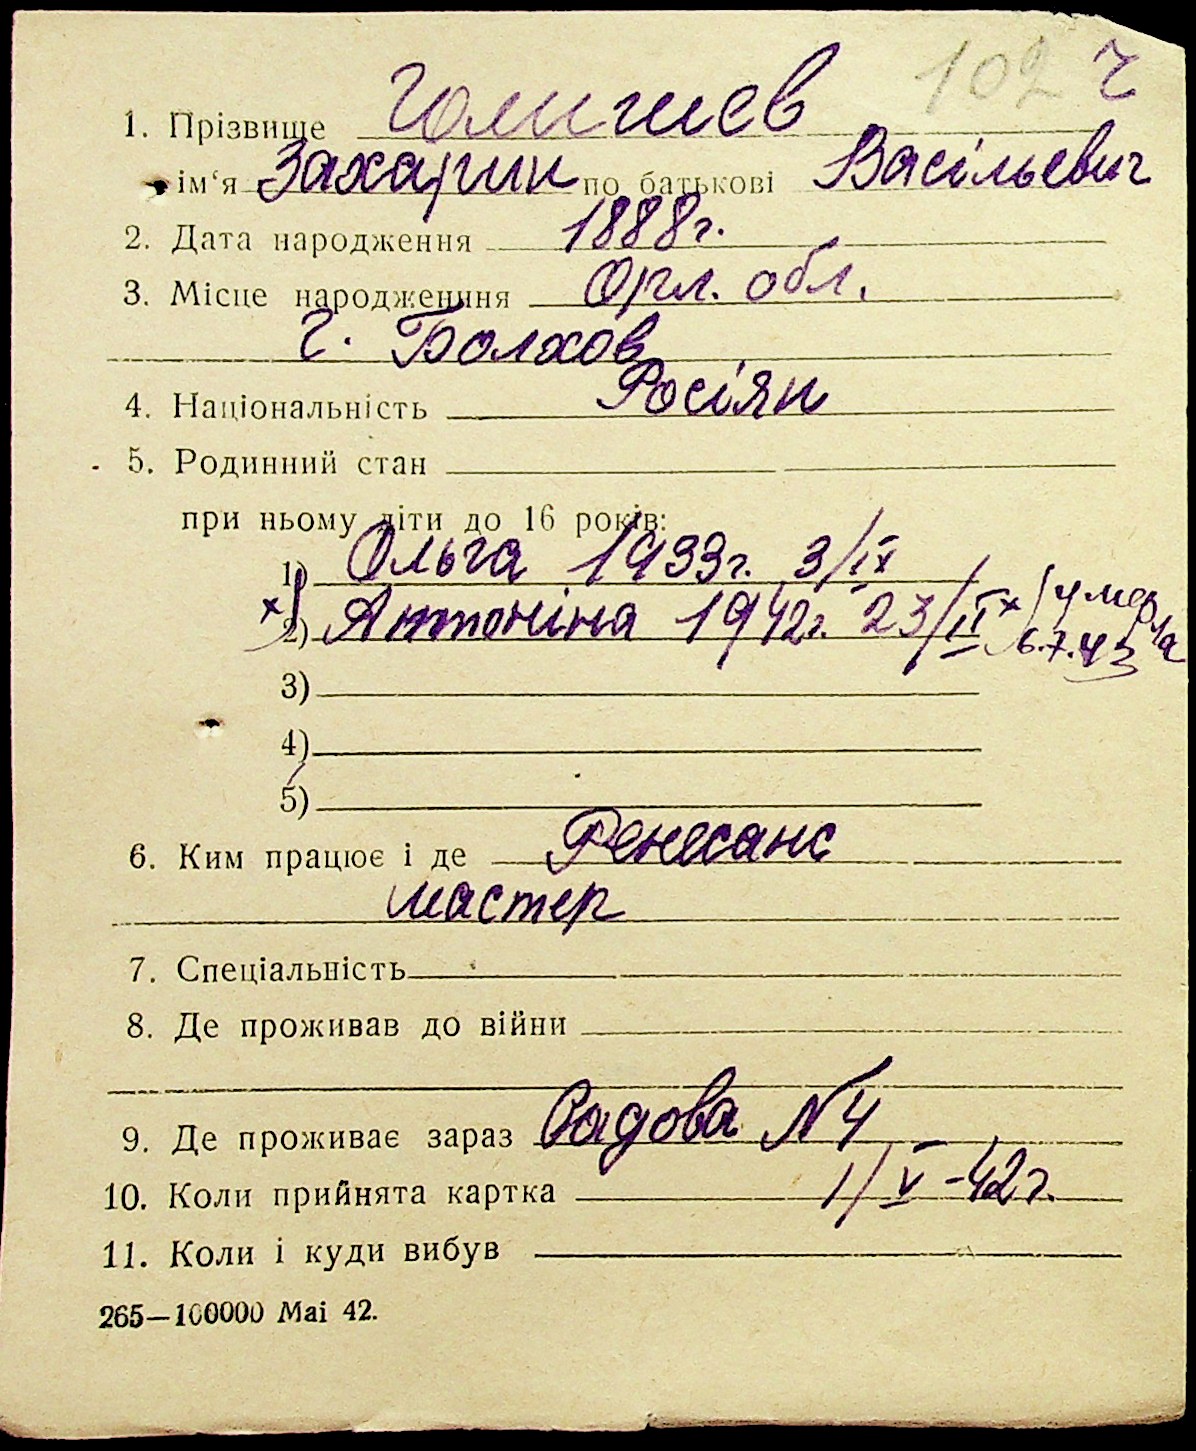 102 г
1. Прізвище Голишев
ім‘я Захарин по батькові Васільевич
2. Дата народження 1888г.
3. Місце народженння Орл. обл.
г. Болхов
4. Національність Росіян
5. Родинний стан
при ньому діти до 16 років:
1) Ольга 1933г. 3/IX
x 2) Антоніна 1942г. 23/II x умерла
6.7.43
3)
4)
5)
6. Ким працює і де Ренесанс
мастер
7. Спеціальність
8. Де проживав до війни
9. Де проживає зараз Садова N 4
10. Коли прийнята картка 1/V-42г.
11. Коли і куди вибув
265—100000 Mai 42.